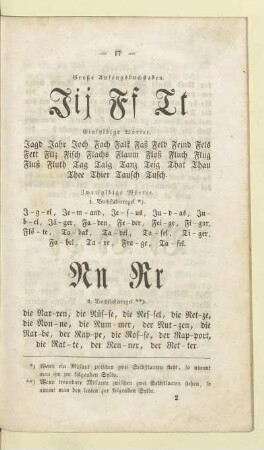 — 17 —
Große Anfangsbuchstaben.
Jij Ff Tt
Einsylbige Wörter.
Jagd Jahr Joch Fach Falk Faß Feld Feind Fels
Fett Filz Fisch Flachs Flaum Floß Fluch Flug
Fluß Fluth Tag Taig Tanz Teig That Thau
Thee Thier Tausch Tusch.
Zweisylbige Wörter.
1. Buchstabierregel *).
I-gel, Je-mand, Je-sus, Ju-das, Ju-
bel, Jä-ger, Fa-den, Fe-der, Fei-ge, Fi-gur,
Flö-te, Ta-bak, Ta-del, Ta-fel, Ti-ger,
Fa-bel, Ta-re, Fra-ge, Ta-fel.
Nn Rr
2. Buchstabierregel **).
die Nar-ren, die Nüs-se, die Nes-sel, die Net-ze,
die Non-ne, die Num-mer, der Nut-zen, die
Nar-be, der Rap-pe, die Ros-se, der Rap-port,
die Rat-te, der Ren-ner, der Ret-ter.
*) Wenn ein Mitlaut zwischen zwei Selbstlauten steht, so nimmt
man ihn zur folgenden Sylbe.
**) Wenn trennbare Mitlaute zwischen zwei Selbstlauten stehen, so
nimmt man den letzten zur folgenden Sylbe.
2